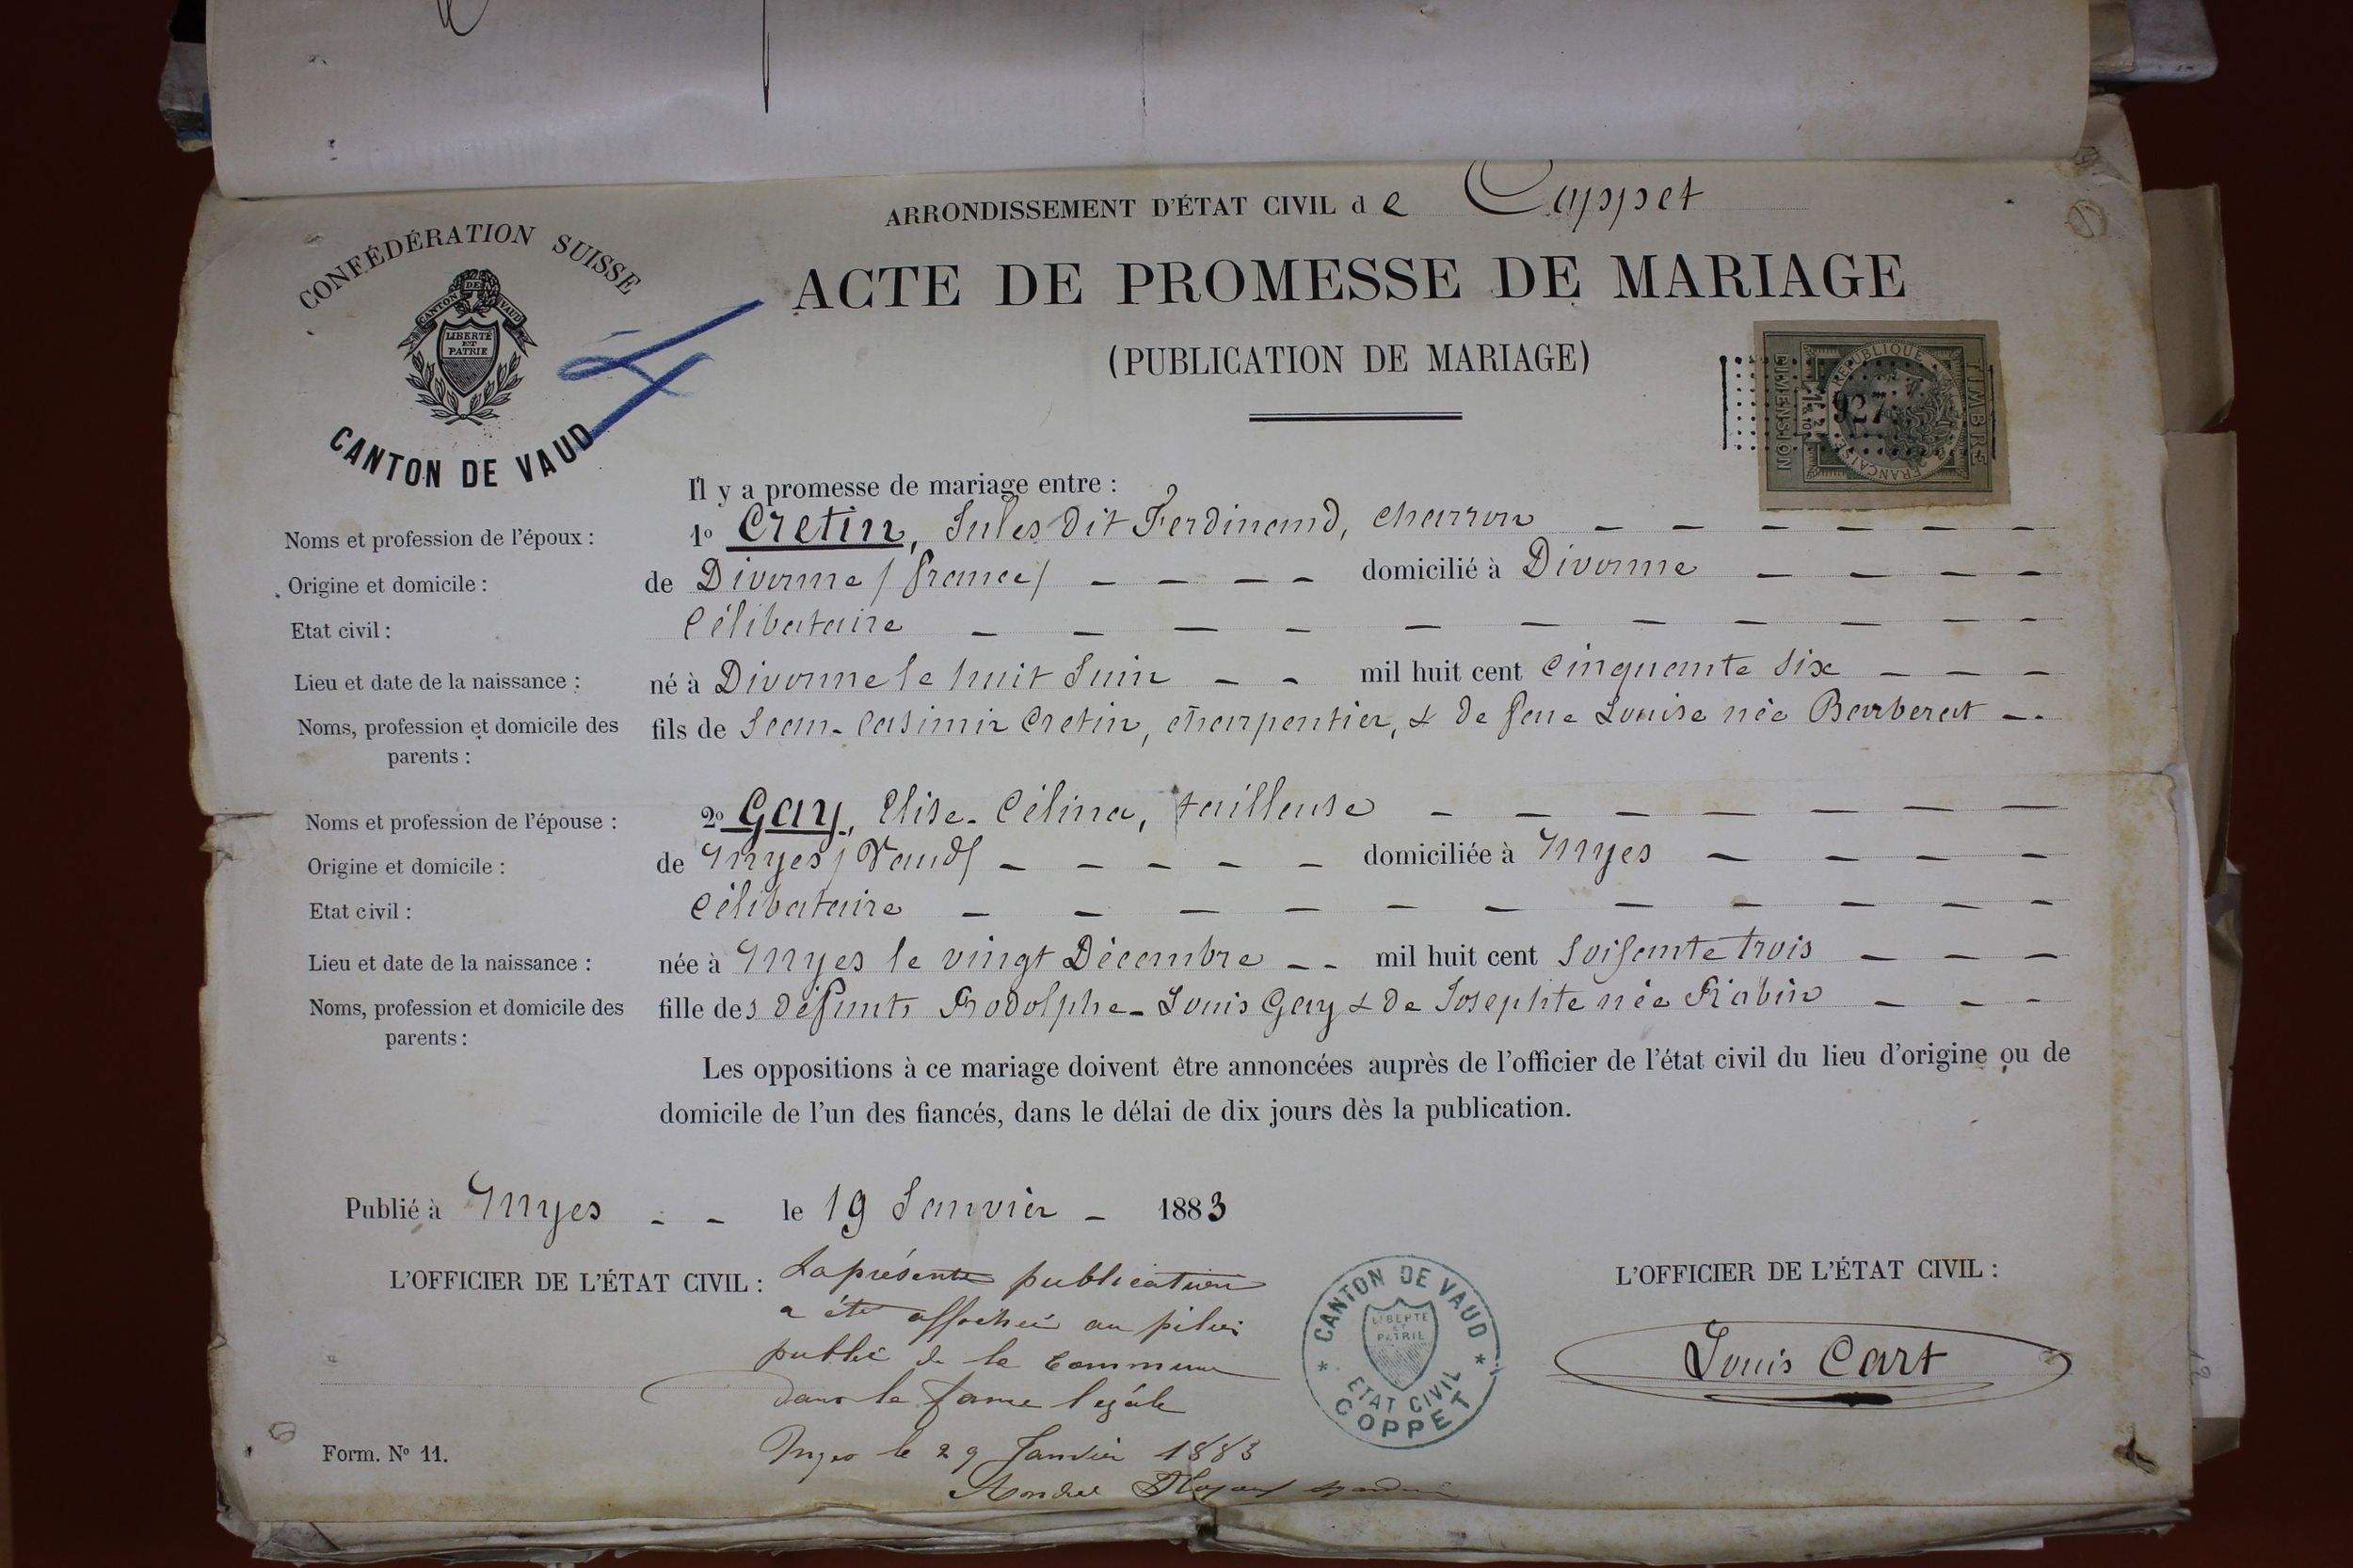 ARRONDISSEMENT D'ÉTAT CIVIL de Coppet
CONFÉDÉRATION SUISSE
CANTON DE VAUD
LIBERTÉ
ET
PATRIE
CANTON DE VAUD
ACTE DE PROMESSE DE MARIAGE
(PUBLICATION DE MARIAGE)
TIMBRE
RÉPUBLIQUE FRANÇAISE
927
DIMENSION
Il y a promesse de mariage entre :
Noms et profession de l'époux : 1º Cretin, Jules dit Ferdinand, charron
Origine et domicile : de Divonne / france / domicilié à Divonne
Etat civil : Célibataire
Lieu et date de la naissance : né à Divonne le huit Juin mil huit cent cinquante six
Noms, profession et domicile des fils de Jean-Casimir Cretin, charpentier, & de feue Louise née Barberat
parents :
Noms et profession de l'épouse : 2º Gay, Elise-Célina, tailleuse
Origine et domicile : de Myes / Vaud / domiciliée à Myes
Etat civil : Célibataire
Lieu et date de la naissance : née à Myes le vingt Décembre mil huit cent soisante trois
Noms, profession et domicile des fille des défunts Rodolphe-Louis Gay & de Josephte née Robin
parents :
Les oppositions à ce mariage doivent être annoncées auprès de l'officier de l'état civil du lieu d'origine ou de
domicile de l'un des fiancés, dans le délai de dix jours dès la publication.
Publié à Myes le 19 Janvier 1883
L'OFFICIER DE L'ÉTAT CIVIL : La présente publication
a été affichée au pilier
public de la Commune
dans la forme légale
Myes le 29 Janvier 1883
André
CANTON DE VAUD
LIBERTE
ET
PATRIE
ETAT CIVIL
COPPET
L'OFFICIER DE L'ÉTAT CIVIL :
Louis Cart
Form. Nº 11.